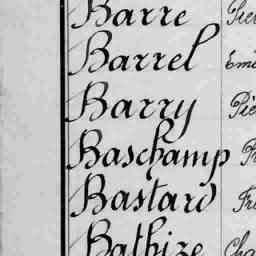 Barre
Barrel
Barry Pie
Baschamp
Bastard
Bathize Cha